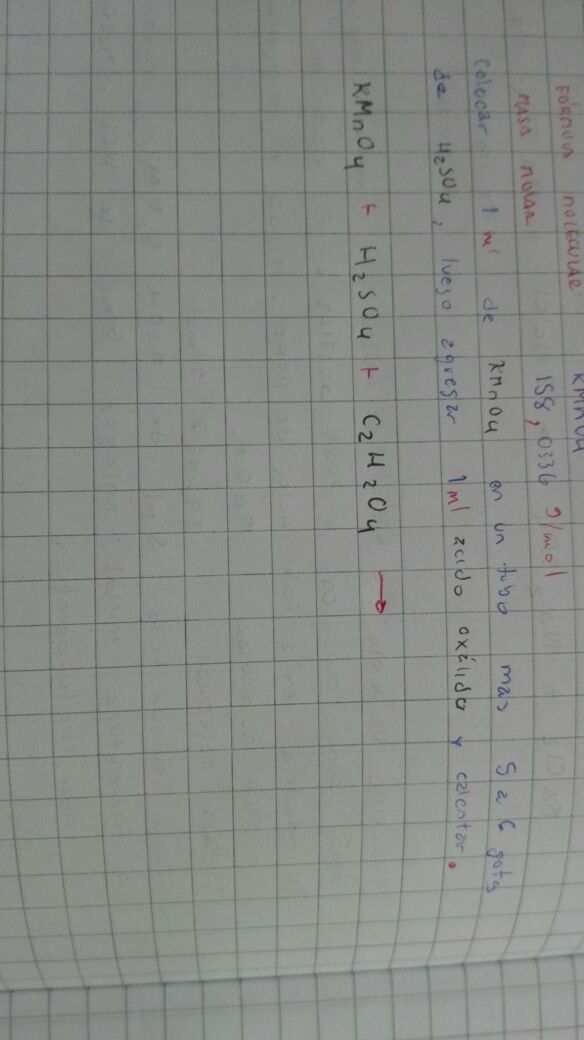 FÓRMULA MOLECULAR KMnO4
MASA MOLAR 158,0336 g/mol
Colocar 1 ml de KMnO4 en un tubo mas 5 a 6 gotas
de H2SO4, luego agregar 1 ml acido oxálido y calentar.
KMnO4 + H2SO4 + C2H2O4 →